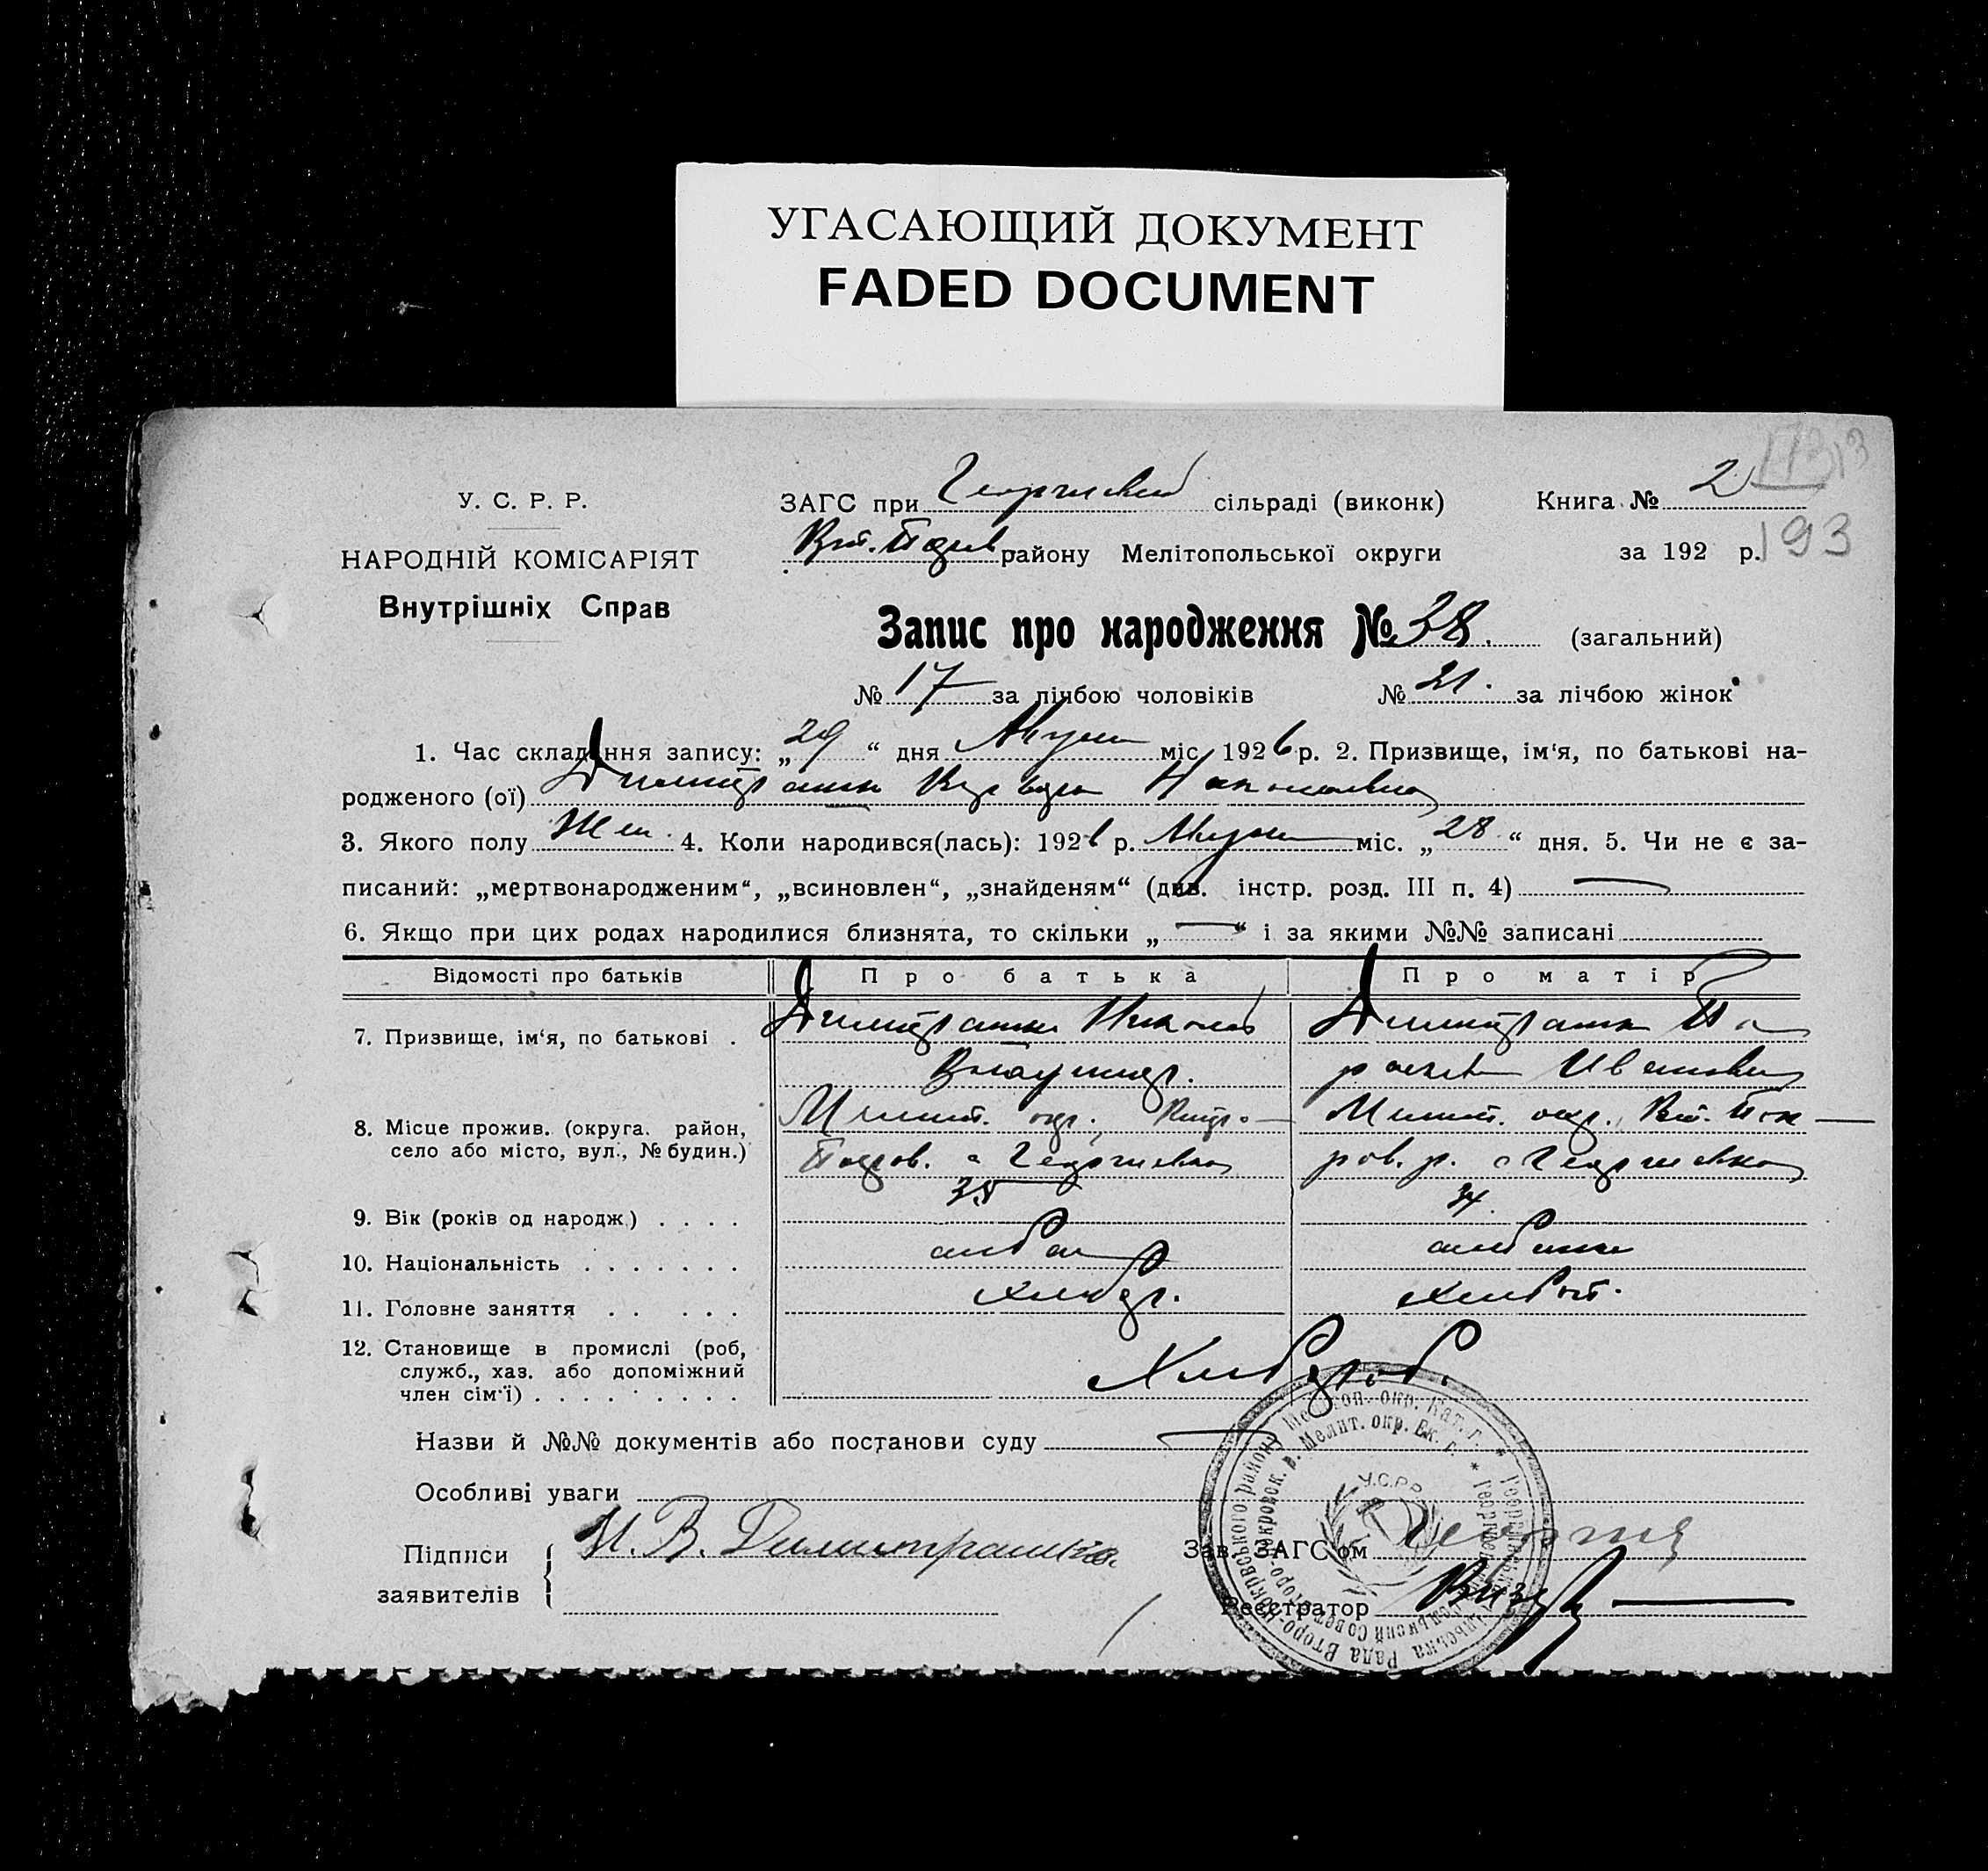 УГАСАЮЩИЙ ДОКУМЕНТ
FADED DOCUMENT
У. С. Р. Р.
НАРОДНІЙ КОМІСАРІЯТ
Внутрішніх Справ
ЗАГС при Георгиевской сільраді (виконк)
Книга № 2
району Мелітопольської округи
за 192 р.
193
Запис про народження № 38. (загальний)
№ 17 за лічбою чоловіків № 21. за лічбою жінок
1. Час складання запису: „29“ дня міс 1926 р. 2. Призвище, ім‘я, по батькові на-
родженого (ої) Димитрашка
3. Якого полу Жен. 4. Коли народився(лась): 1926 р. міс. „28“ дня. 5. Чи не є за-
писаний: „мертвонародженим“, „всиновлен“, „знайденям“ (див. інстр. розд. III п. 4) —
6. Якщо при цих родах народилися близнята, то скільки „—“ і за якими №№ записані
Відомості про батьків Про батька Про матір
7. Призвище, ім‘я, по батькові . Димитрашка Николай Димитрашка Па
раскева Ивановна
8. Місце прожив. (округа. район, Мелит. окр., Мелит. окр., Вт. Пок
село або місто, вул., № будин.) Покров. с Георгиевка ров. р. с Георгиевка
9. Вік (років од народж.) . . . . 35 34.
10. Національність . . . . . . . албан албанка
11. Головне заняття . . . . . хлебор. хлебоп.
12. Становище в промислі (роб,
служб., хаз. або допоміжний
член сім‘ї) . . . . . . . . . Хлебороб.
Назви й №№ документів або постанови суду —
Особливі уваги
Підписи
заявителів
Н. В. Димитрашка
Зав. ЗАГС‘ом
Реєстратор
У.С.Р.Р.